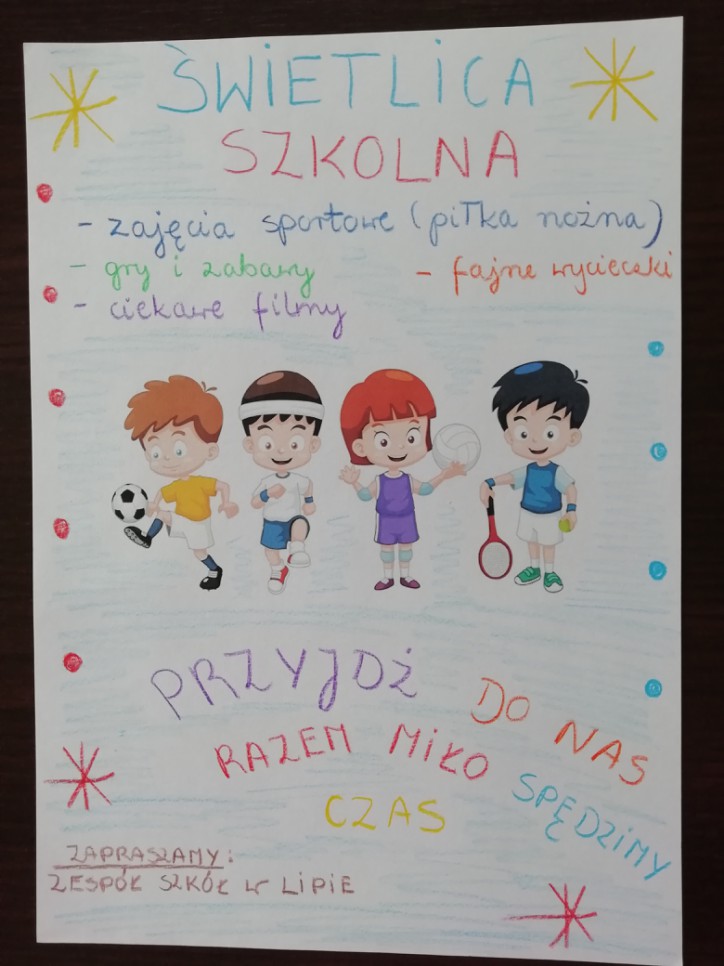 ŚWIETLICA
SZKOLNA
- zajęcia sportowe (piłka nożna)
- gry i zabawy
- fajne wycieczki
- ciekawe filmy
PRZYJDŹ DO NAS
RAZEM MIŁO SPĘDZIMY
CZAS
ZAPRASZAMY:
ZESPÓŁ SZKÓŁ W LIPIE